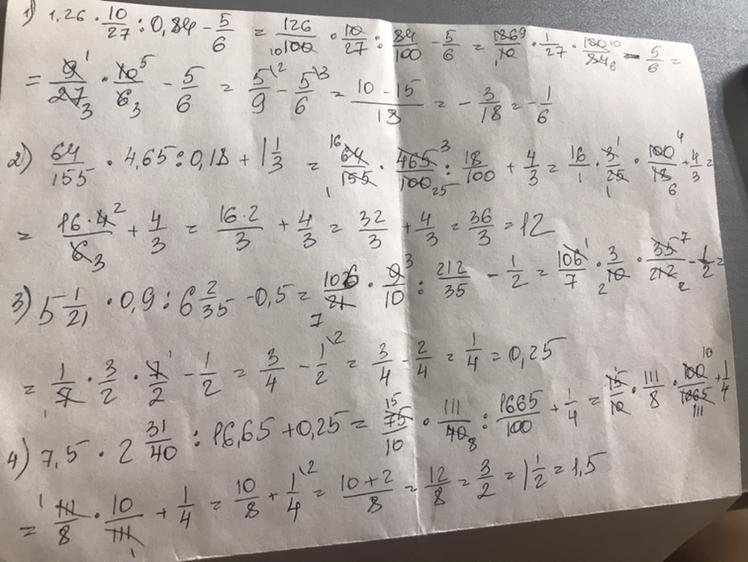 1) 1,26 · 10/27 : 0,84 - 5/6 = 126/100 · 10/27 : 84/100 - 5/6 = 9/10 · 1/27 · 100/84 - 5/6 =
= 9/27 · 10/6 - 5/6 = 5/9 - 5/6 = (10 - 15)/18 = - 3/18 = - 1/6
2) 64/155 · 4,65 : 0,18 + 1 1/3 = 64/155 · 465/100 : 18/100 + 4/3 = 16/1 · 3/25 · 100/18 + 4/3 =
= (16 · 4)/6 + 4/3 = (16 · 2)/3 + 4/3 = 32/3 + 4/3 = 36/3 = 12
3) 5 1/21 · 0,9 : 6 2/35 - 0,5 = 106/21 · 9/10 : 212/35 - 1/2 = 106/7 · 3/10 · 35/212 - 1/2 =
= 1/7 · 3/2 · 7/2 - 1/2 = 3/4 - 1/2 = 3/4 - 2/4 = 1/4 = 0,25
4) 7,5 · 2 31/40 : 16,65 + 0,25 = 75/10 · 111/40 : 1665/100 + 1/4 = 15/10 · 111/8 · 100/1665 + 1/4
= 111/8 · 10/111 + 1/4 = 10/8 + 1/4 = (10 + 2)/8 = 12/8 = 3/2 = 1 1/2 = 1,5